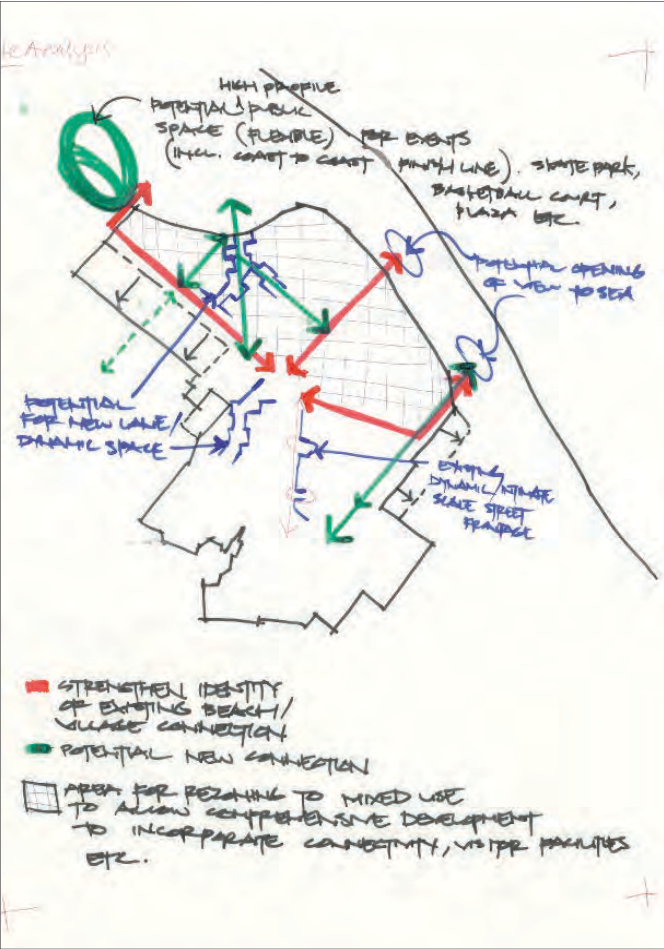 te Analysis
HIGH PROFILE
POTENTIAL ^ PUBLIC
SPACE (FLEXIBLE) FOR EVENTS
(INCL. COAST TO COAST FINISH LINE). SKATE PARK,
BASKETBALL COURT,
PLAZA ETC.
POTENTIAL OPENING
OF VIEW TO SEA
POTENTIAL
FOR NEW LANE/
DYNAMIC SPACE
EXISTING
DYNAMIC/INTIMATE
SCALE STREET
FRONTAGE
STRENGTHEN IDENTITY
OF EXISTING BEACH/
VILLAGE CONNECTION
POTENTIAL NEW CONNECTION
AREA FOR REZONING TO MIXED USE
TO ALLOW COMPREHENSIVE DEVELOPMENT
TO INCORPARATE CONNECTIVITY, VISITOR FACILITIES
ETC.